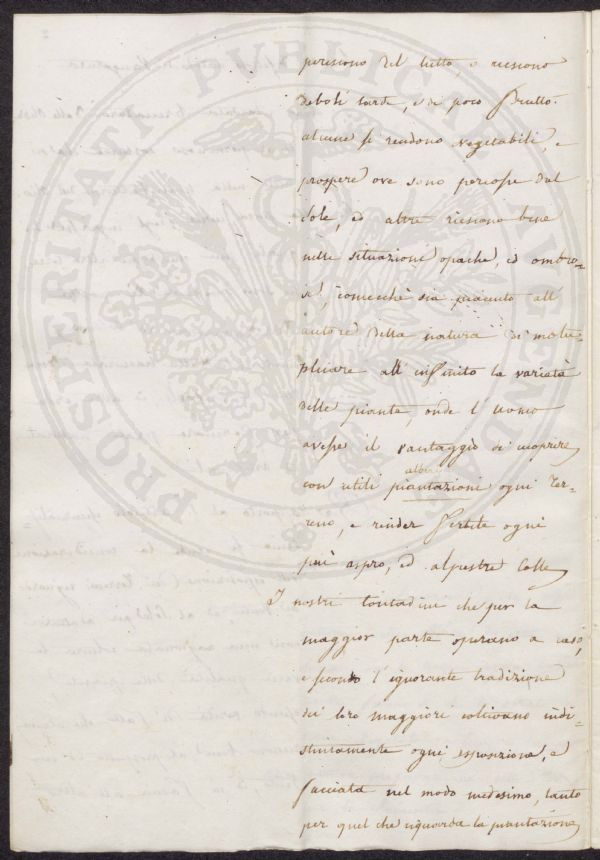 periscono del tutto, o riescono
deboli tarde, e di poco frutto.
alcune si rendono vegetabili, e
prospere ove sono percosse dal
Sole, ed altre riescono bene
nelle situazioni opache, ed ombro-
se, comecchè sia piaciuto all'
autore della natura di molti-
plicare all' infinito la varietà
delle piante, onde l' Uomo
avesse il vantaggio di cuoprire
con utili piantazioni ogni Ter-
reno, e render fertile ogni
più aspro, ed alpestre Colle
I nostri Contadini che per la
maggior parte operano a caso,
e secondo l' ignorante tradizione
dei loro maggiori coltivano indi-
stintamente ogni esposizione, e
facciata nel modo medesimo, tanto
per quel che riguarda la piantazione
PROSPERITATI PUBLICAE AUGENDAE